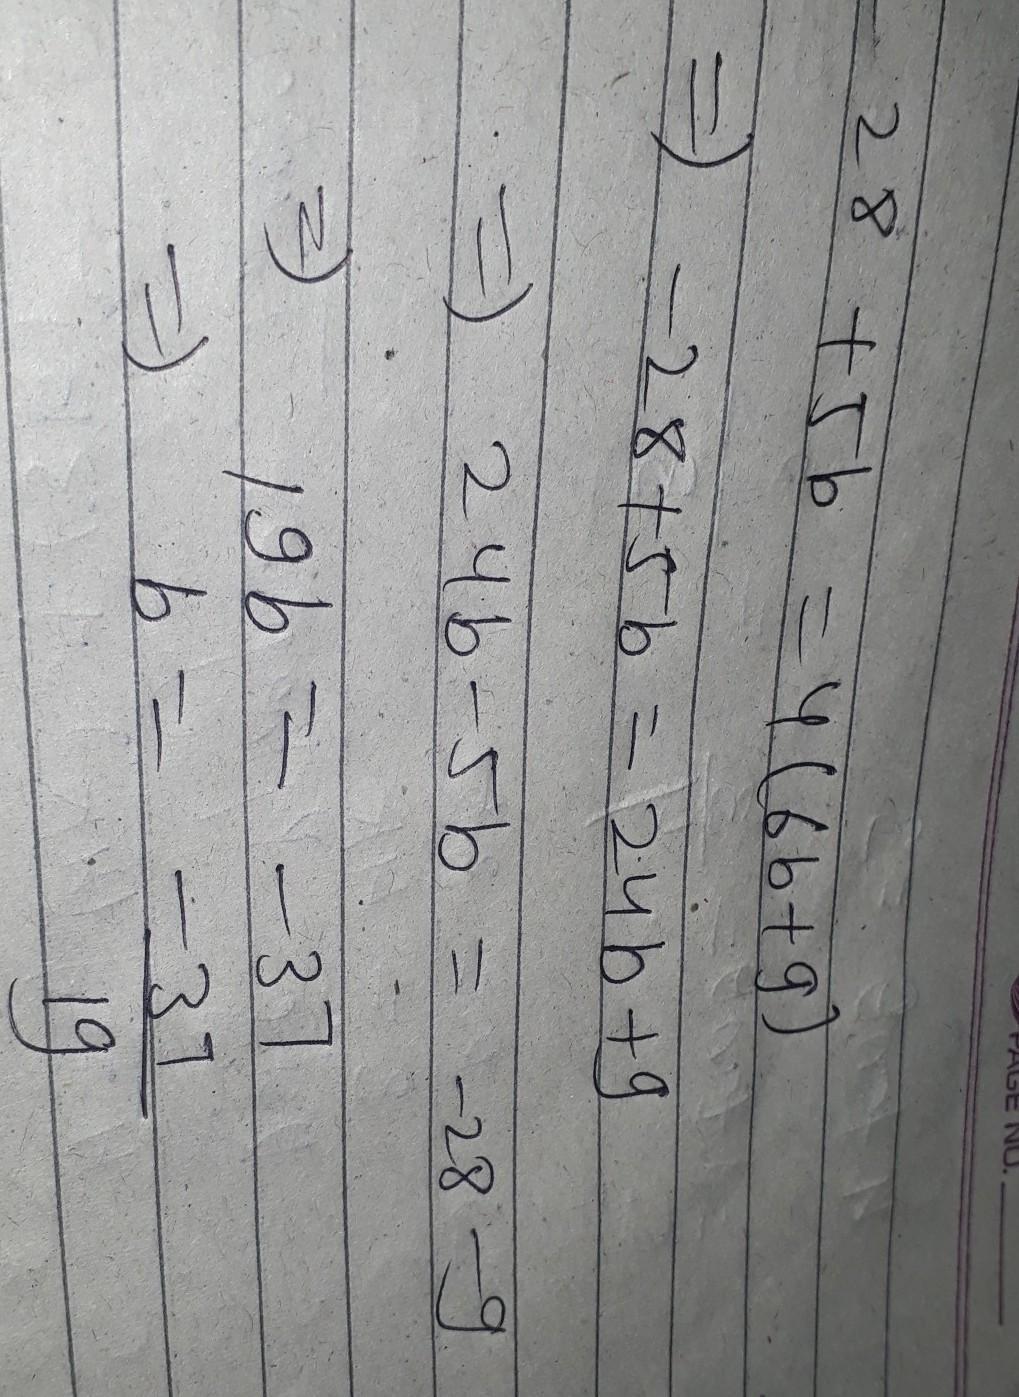 PAGE NO.
- 28 + 5b = 4(6b+9)
=) - 28+5b = 24b+9
=) 24b-5b = -28-9
=) 19b = -37
=) b = -37/19